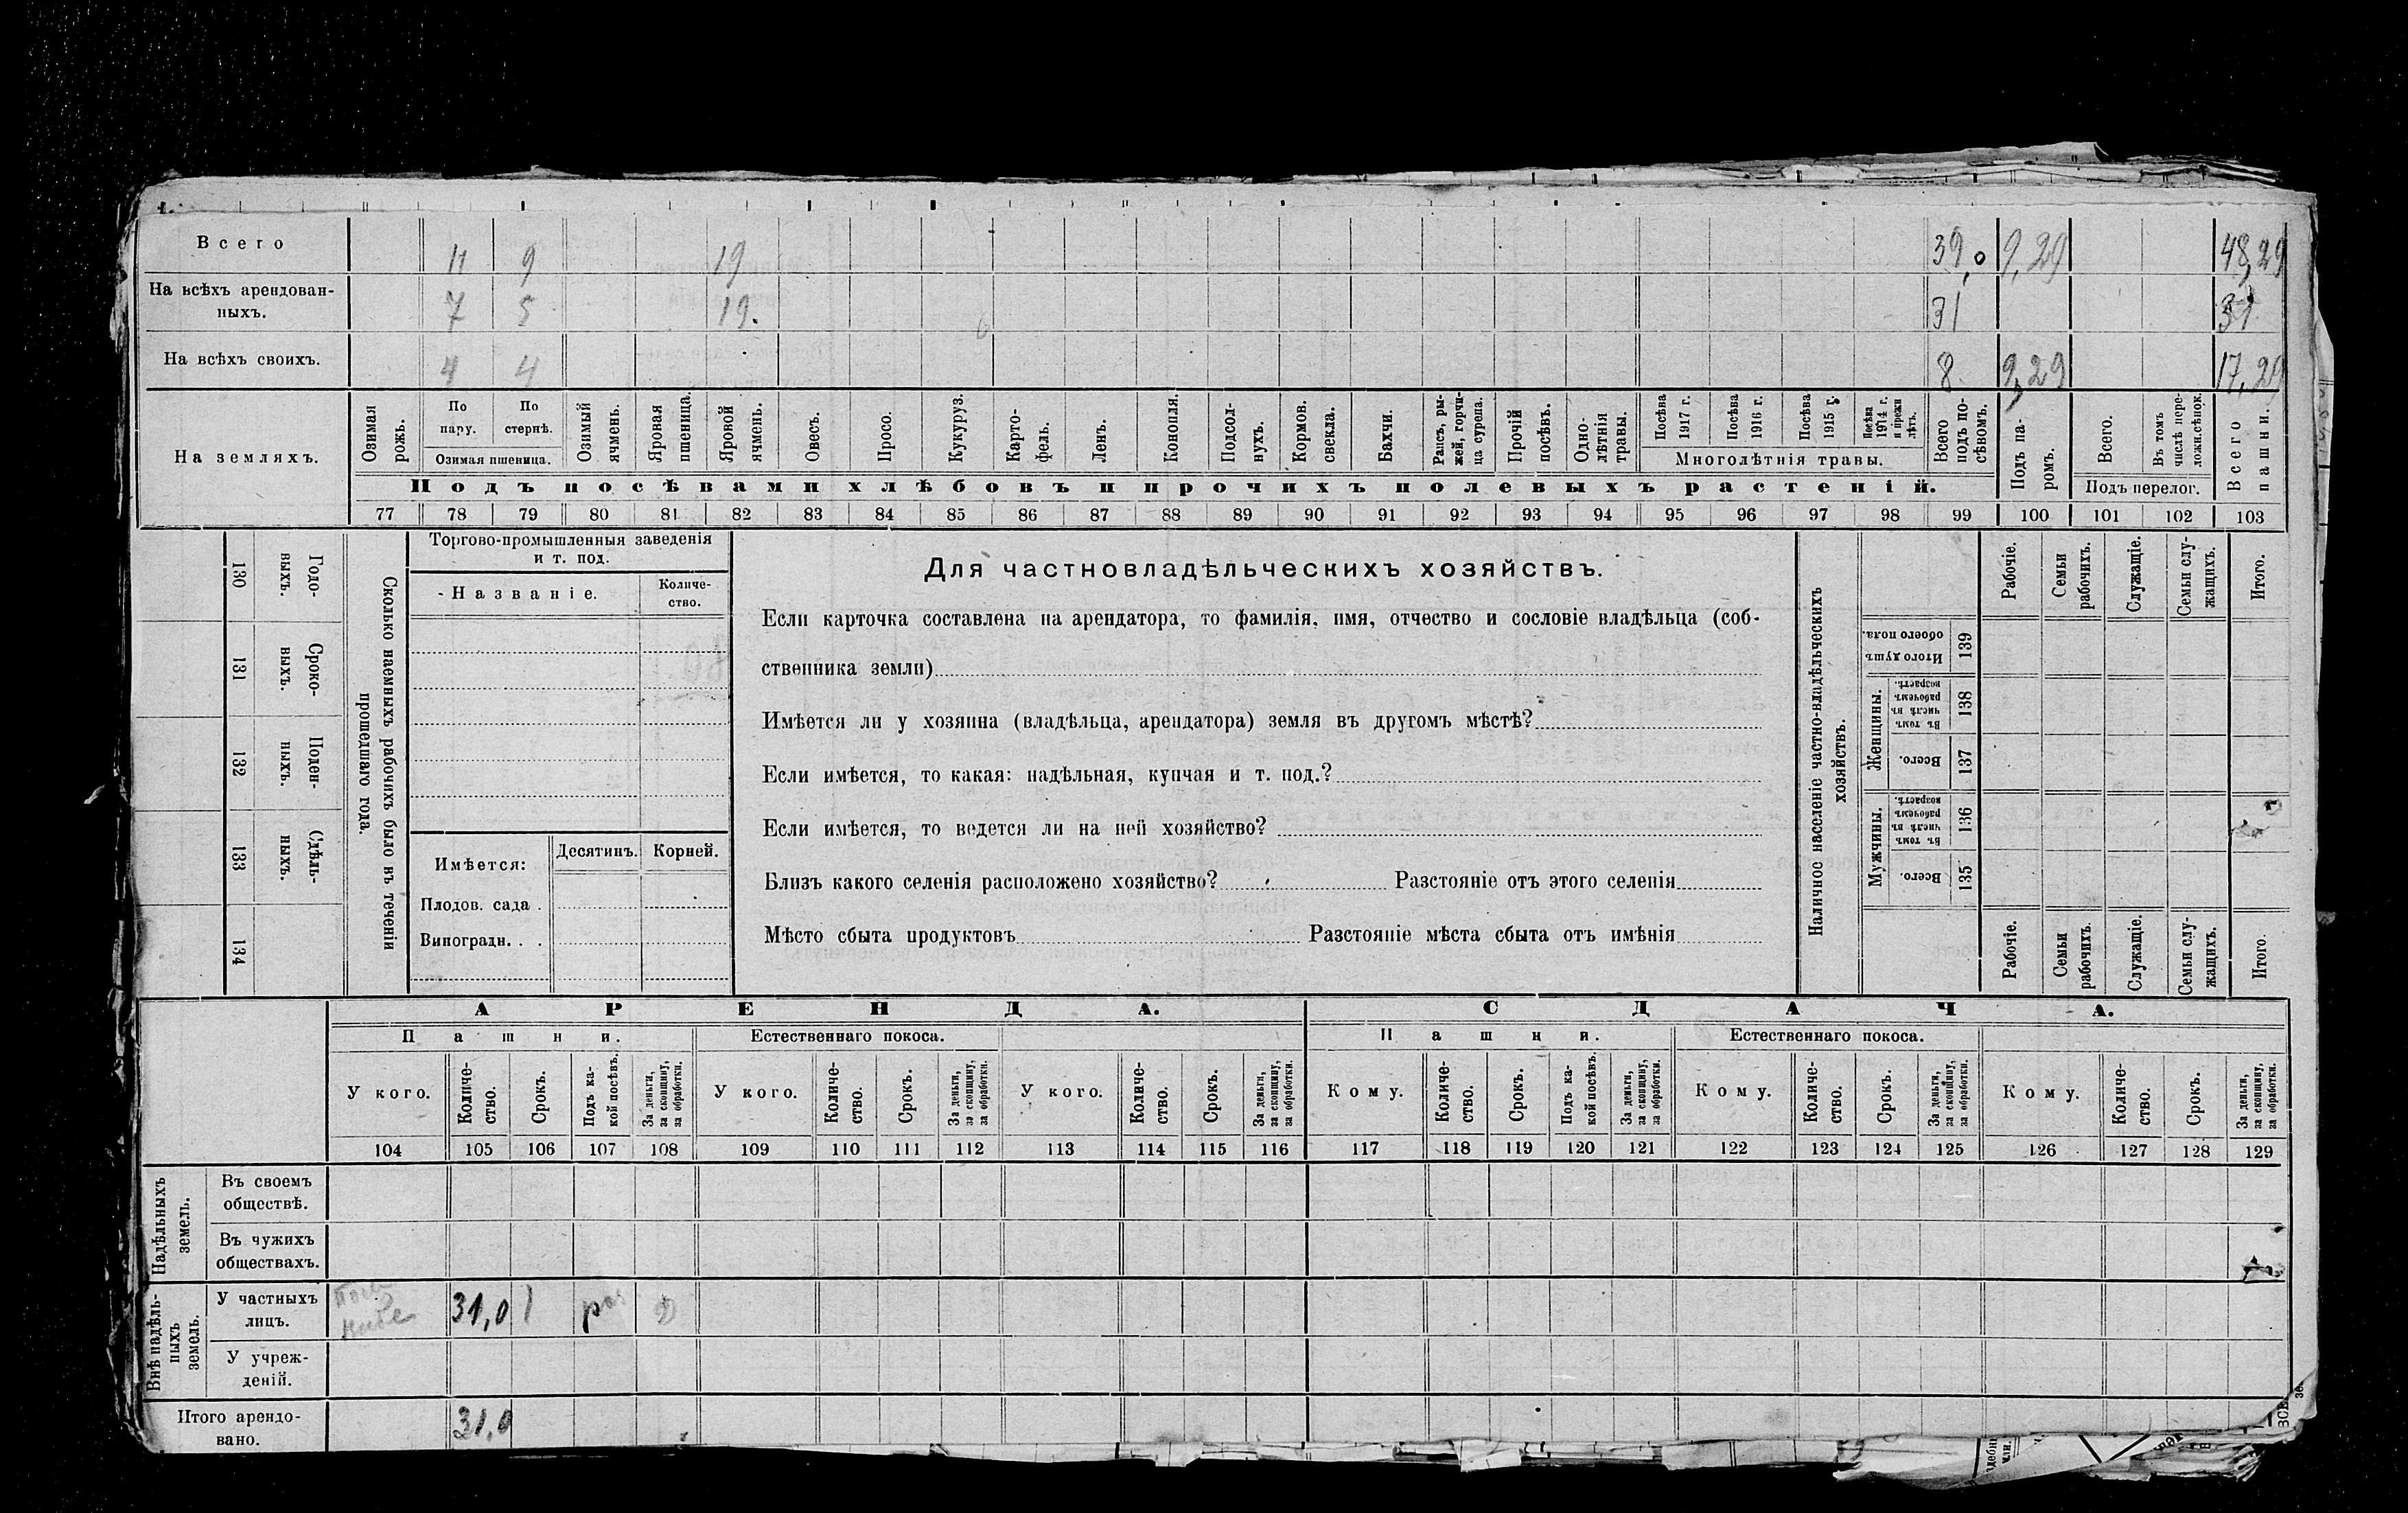 Всего 11 9 19 39,0 9,29 48,29
На всѣхъ арендован-
ныхъ. 7 5 19. 31 31
На всѣхъ своихъ. 4 4 8 9,29 17,29
На земляхъ.
Озимая рожь.
По пару.
По стернѣ.
Озимая пшеница.
Озимый ячмень.
Яровая пшеница.
Яровой ячмень.
Овесъ.
Просо.
Кукуруз.
Карто-
фель.
Ленъ.
Конопля.
Подсол-
нухъ.
Кормов. свекла.
Бахчи.
Рапсъ, ры-
жей, горчи-
ца сурепа.
Прочій посѣвъ.
Одно-
лѣтнія травы.
Посѣва 1917 г.
Посѣва 1916 г.
Посѣва 1915 г.
Посѣва 1914 г. и прежн лѣтъ.
Многолѣтнія травы.
Всего подъ по-
сѣвомъ.
Подъ па-
ромъ.
Всего.
Въ томъ числѣ пере-
ложн.сѣнок.
Подъ перелог.
Всего пашни.
Подъ посѣвами хлѣбовъ и прочихъ полевыхъ растеній.
77 78 79 80 81 82 83 84 85 86 87 88 89 90 91 92 93 94 95 96 97 98 99 100 101 102 103
130 Годо-
выхъ.
131 Сроко-
выхъ.
132 Поден-
ныхъ.
133 Сдѣль-
ныхъ.
134
Сколько наемныхъ рабочихъ было въ теченіи
прошедшаго года.
Торгово-промышленныя заведенія
и т. под.
Названіе.
Количе-
ство.
Имѣется: Десятинъ. Корней.
Плодов. сада .
Виноградн. . .
Для частновладѣльческихъ хозяйствъ.
Если карточка составлена на арендатора, то фамилія, имя, отчество и сословіе владѣльца (соб-
ственника земли)
Имѣется ли у хозяина (владѣльца, арендатора) земля въ другомъ мѣстѣ?
Если имѣется, то какая: надѣльная, купчая и т. под.?
Если имѣется, то ведется ли на ней хозяйство?
Близъ какого селенія расположено хозяйство? Разстояніе отъ этого селенія
Мѣсто сбыта продуктовъ Разстояніе мѣста сбыта отъ имѣнія
Наличное населеніе частно-владѣльческихъ
хозяйствъ.
Рабочіе.
Семьи рабочихъ.
Служащіе.
Семьи слу-
жащихъ.
Итого.
Итого душъ обоего пола. 139
Женщины.
Въ томъ числѣ въ рабочемъ возрастѣ. 138
Всего. 137
Мужчины.
Въ томъ числѣ въ рабочемъ возрастѣ. 136
Всего. 135
Рабочіе.
Семьи рабочихъ.
Служащіе.
Семьи слу-
жащихъ.
Итого.
АРЕНДА. СДАЧА.
Пашни. Естественнаго покоса. Пашни. Естественнаго покоса.
У кого.
Количе-
ство.
Срокъ.
Подъ ка-
кой посѣвъ.
За деньги, за скопщину, за обработки.
У кого.
Количе-
ство.
Срокъ.
За деньги, за скопщину, за обработки.
У кого.
Количе-
ство.
Срокъ.
За деньги, за скопщину, за обработки.
Кому.
Количе-
ство.
Срокъ.
Подъ ка-
кой посѣвъ.
За деньги, за скопщину, за обработки.
Кому.
Количе-
ство.
Срокъ.
За деньги, за скопщину, за обработки.
Кому.
Количе-
ство.
Срокъ.
За деньги, за скопщину, за обработки.
104 105 106 107 108 109 110 111 112 113 114 115 116 117 118 119 120 121 122 123 124 125 126 127 128 129
Надѣльныхъ земель.
Въ своемъ
обществѣ.
Въ чужихъ
обществахъ.
Внѣ надѣль-
ныхъ земель.
У частныхъ
лицъ. 31,0 1
У учреж-
деній.
Итого арендо-
вано. 31,0